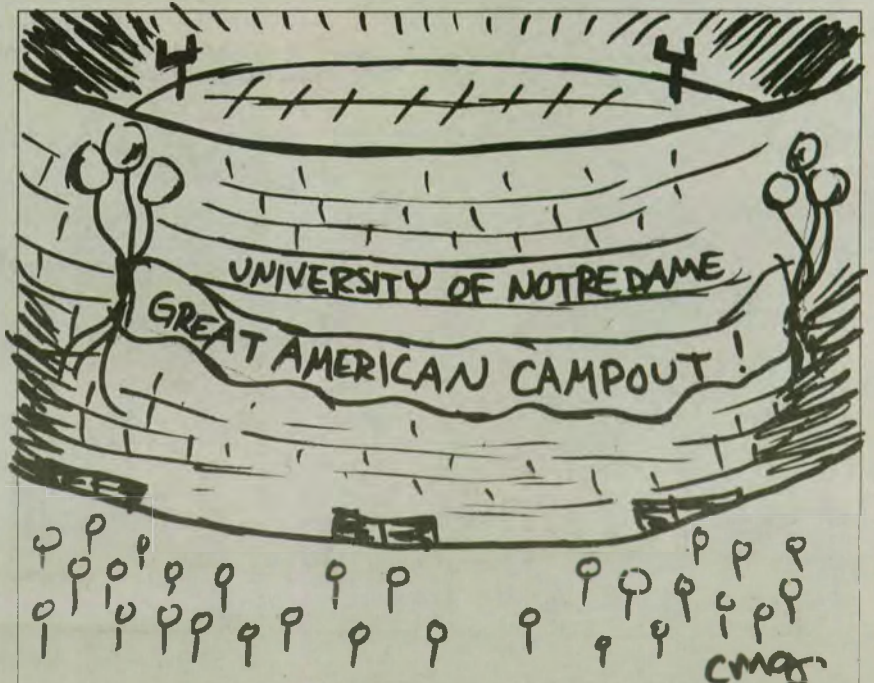 UNIVERSITY OF NOTRE DAME
GREAT AMERICAN CAMPOUT!